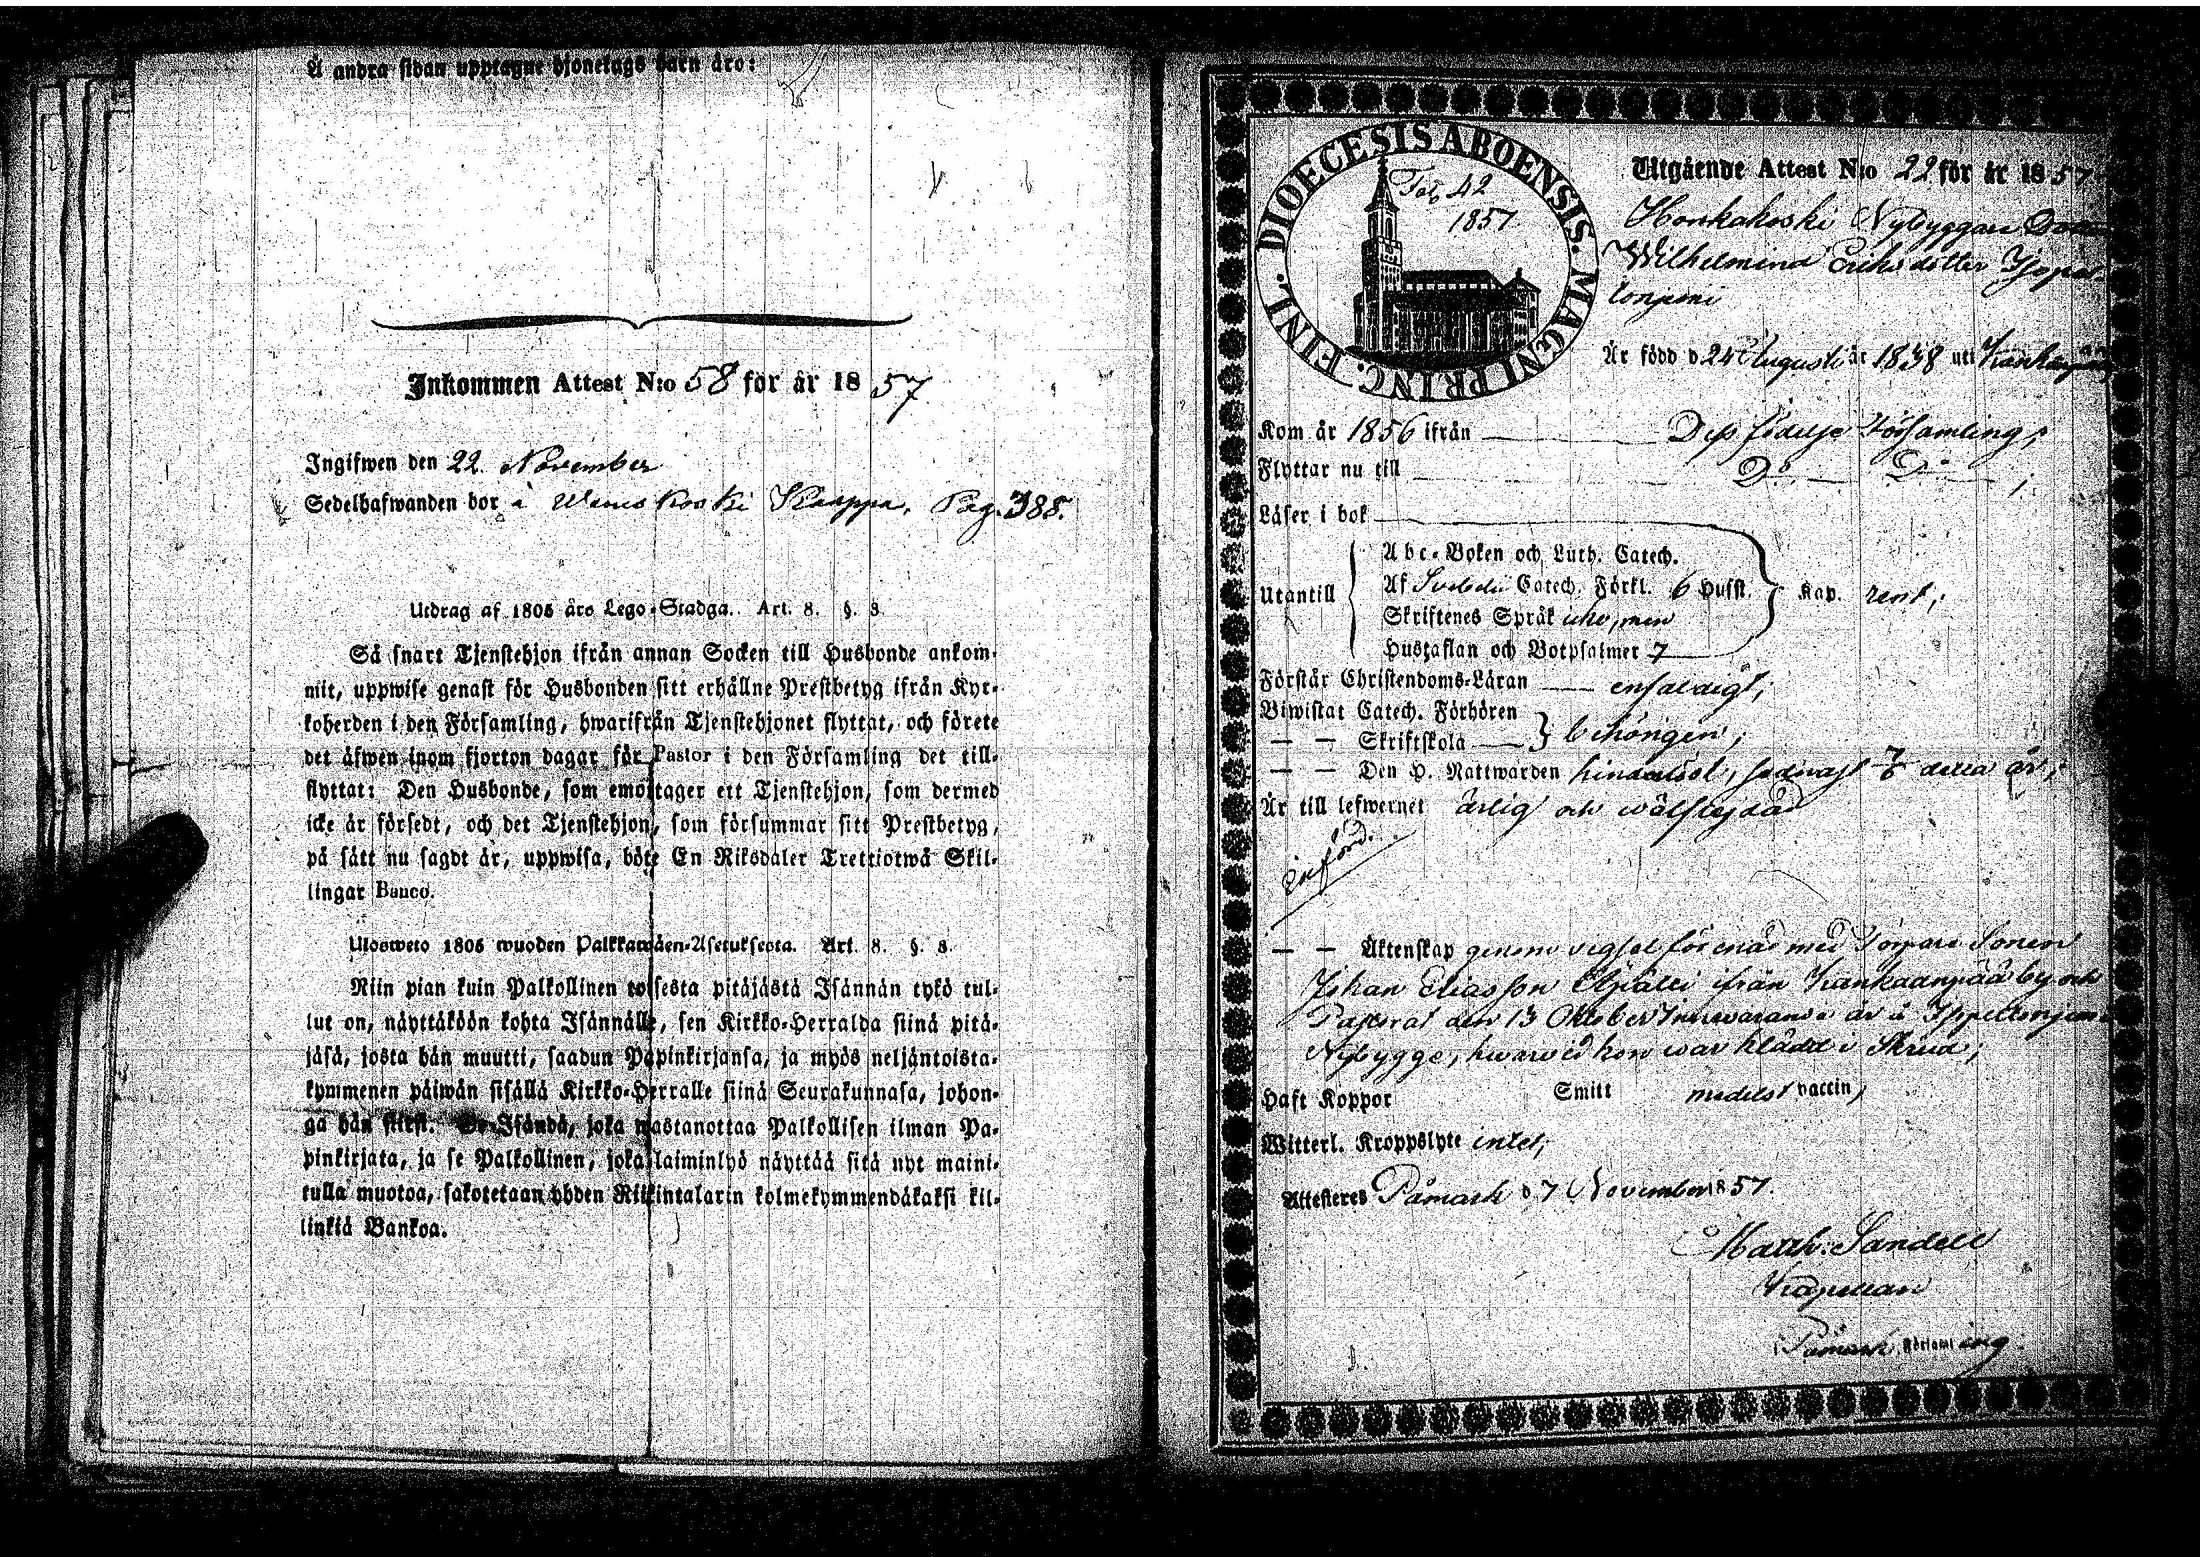 Å andra sidan upptagne hjonelags barn äro:
Inkommen Attest N:o 58 för år 1857
Ingifwen den 22 November
Sedelhafwanden bor å Pag. 388.
Utdrag af 1805 års Lego-Stadga. Art. 8. §. 8.
Så snart Tjenstehjon ifrån annan Socken till Husbonde ankom-
mit, uppwise genast för Husbonden sitt erhållne Prestbetyg ifrån Kyr-
koherden i den Församling, hwarifrån Tjenstehjonet flyttat, och förete
det äfwen inom fjorton dagar för Pastor i den Församling det till-
flyttat: Den Husbonde, som emottager ett Tjenstehjon, som dermed
icke är försedt, och det Tjenstehjon, som försummar sitt Prestbetyg,
på sätt nu sagdt är, uppwisa, böte En Riksdaler Trettiotwå Skil-
lingar Banco.
Ulosweto 1805 wuoden Palkkawäen-Asetuksesta. Art. 8. §. 8.
Niin pian kuin Palkollinen toisesta pitäjästä Isännän tykö tul-
lut on, näyttäköön kohta Isännälle, sen Kirkko-Herralda siinä pitä-
jäsä, josta hän muutti, saadun Papinkirjansa, ja myös neljäntoista-
kymmenen päiwän sisällä Kirkko-Herralle siinä Seurakunnasa, johon-
ga hän siirsi. Se Isändä, joka wastanottaa Palkollisen ilman Pa-
pinkirjata, ja se Palkollinen, joka laiminlyö näyttää sitä nyt maini-
tulla muotoa, sakotetaan yhden Riikintalarin kolmekymmendäkaksi kil-
linkiä Bankoa.
DIOECESIS ABOENSIS. MAGNI PRINC. FINL.
42
1857
Utgående Attest N:o 22 för år 1857
Honkakoski Nybyggare
Wilhelmina Eriksdotter
Är född d 24 Augusti år 1838 uti
Kom år 1856 ifrån Församling;
Flyttar nu till Do Do;
Läser i bok
Utantill Abc-Boken och Luth. Catech.
Af Svebelii Catech. Förkl. 6 Hufst. Kap. rent;
Skriftenes Språk icke, men
Hustaflan och Botpsalmer 7
Förstår Christendoms-Läran enfaldigt;
Biwistat Catech. Förhören
— — Skriftskola behörigen;
— — Den H. Nattwarden hinderlöst, sednast detta år;
Är till lefwernet ärlig och wälfrejdad
införd.
— — Äktenskap genom vigsel förenad med Torpare Sonen
Johan Eliasson ifrån Kankaanpää by och
Pastorat den 13 Oktober innevarande år å
Nybygge, hwarvid hon war klädd i Skrud;
Haft Koppor Smitt medelst vaccin,
Witterl. Kroppslyte intet;
Attesteras Påmark d 7 November 1857.
Matth: Sandell
Kapellan
i Påmark Församling.